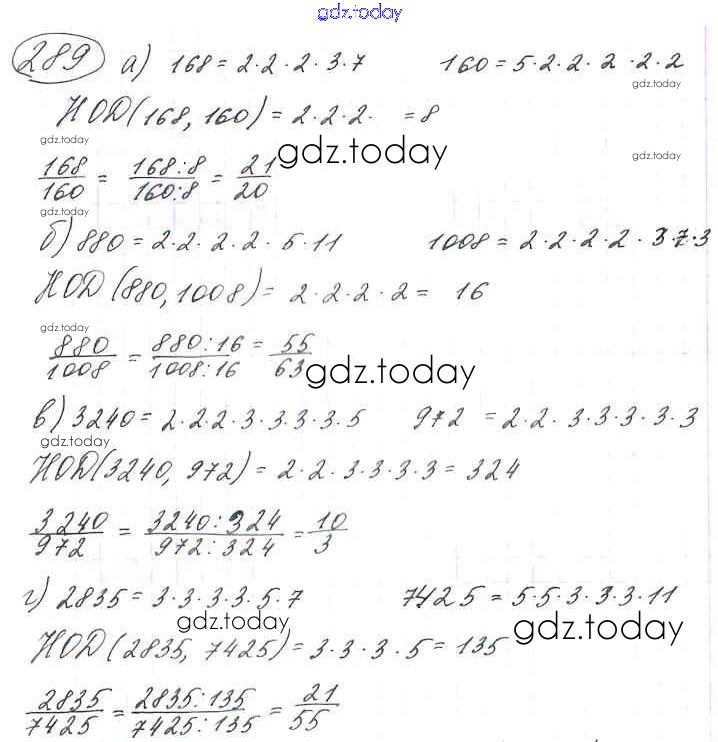 gdz.today
289 а) 168 = 2·2·2·3·7 160 = 5·2·2·2·2·2
gdz.today gdz.today
НОД(168, 160) = 2·2·2· = 8
gdz.today gdz.today gdz.today
168/160 = 168:8/160:8 = 21/20
gdz.today
б) 880 = 2·2·2·2·5·11 1008 = 2·2·2·2·3·7·3
НОД(880, 1008) = 2·2·2·2 = 16
gdz.today
880/1008 = 880:16/1008:16 = 55/63
gdz.today
в) 3240 = 2·2·2·3·3·3·3·5 972 = 2·2·3·3·3·3·3
gdz.today
НОД(3240, 972) = 2·2·3·3·3·3 = 324
3240/972 = 3240:324/972:324 = 10/3
г) 2835 = 3·3·3·3·5·7 7425 = 5·5·3·3·3·11
gdz.today gdz.today
НОД(2835, 7425) = 3·3·3·5 = 135
2835/7425 = 2835:135/7425:135 = 21/55